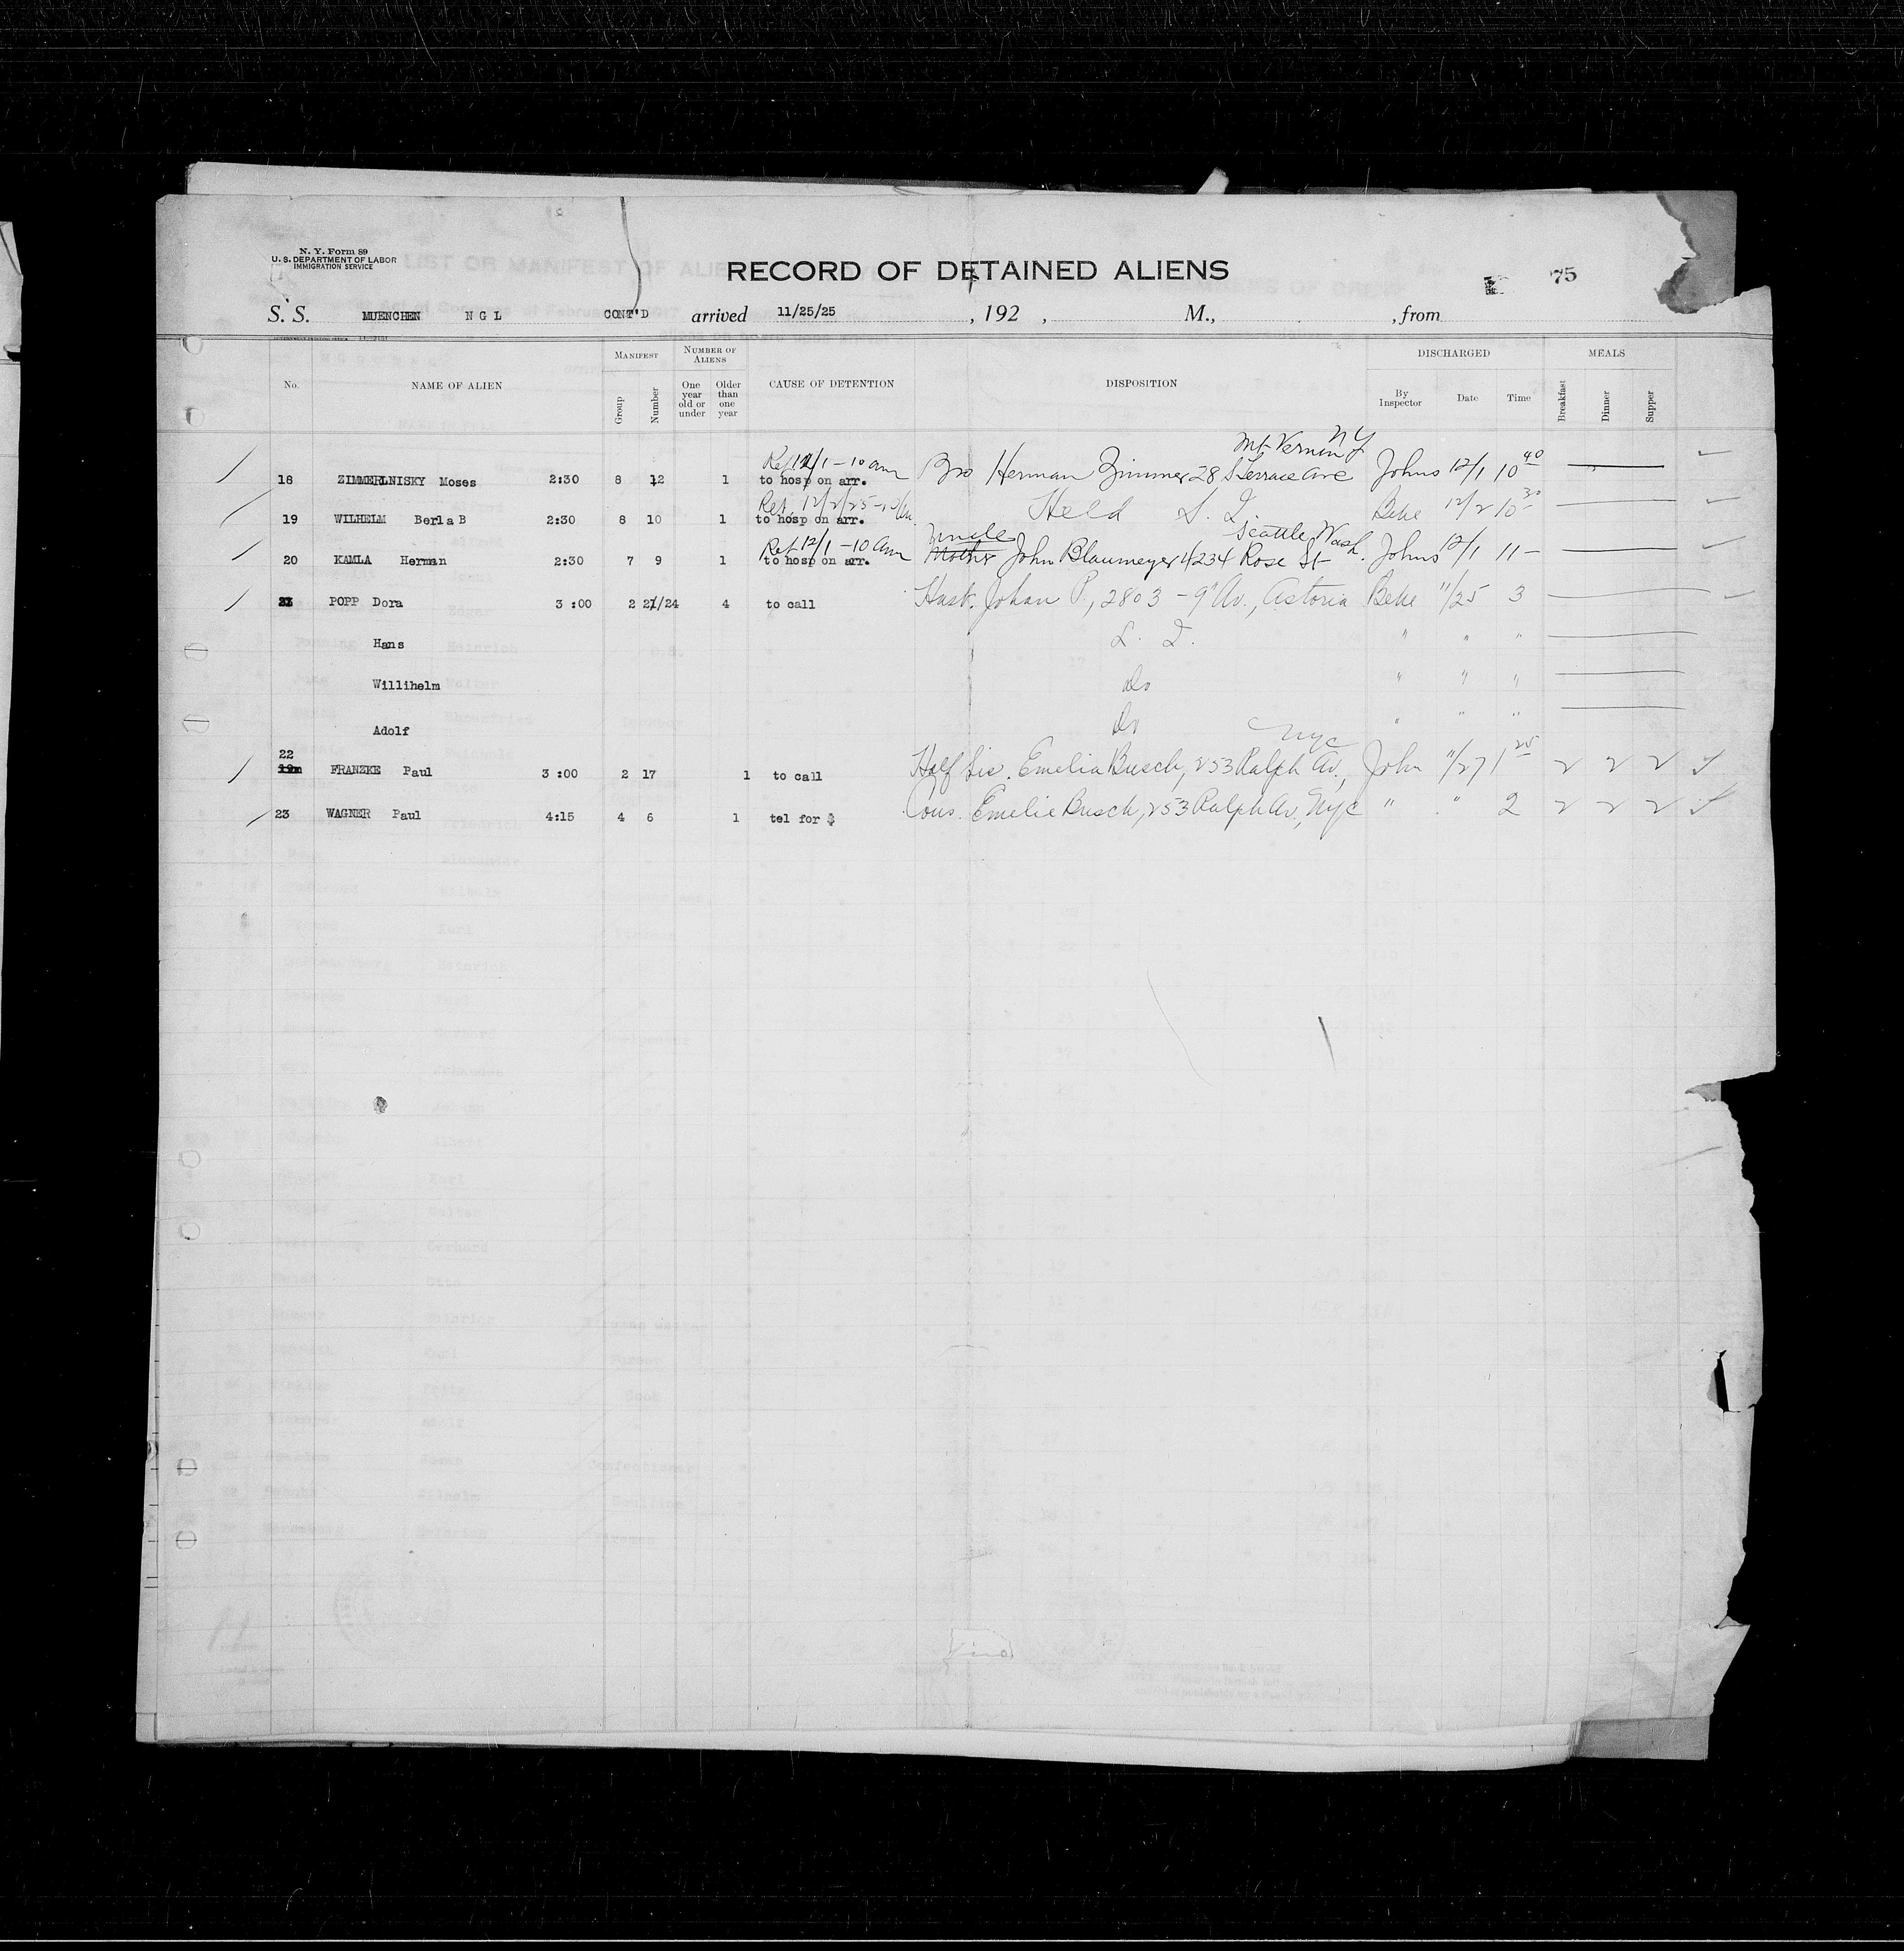 N. Y. Form 89
U. S. DEPARTMENT OF LABOR
IMMIGRATION SERVICE
RECORD OF DETAINED ALIENS
75
S. S. MUENCHEN N G L CONT'D arrived 11/25/25 , 192 , M., , from
No. NAME OF ALIEN MANIFEST Group Number NUMBER OF ALIENS One year old or under Older than one year CAUSE OF DETENTION DISPOSITION DISCHARGED By Inspector Date Time MEALS Breakfast Dinner Supper
Mt. Vernon N Y
Ret 12/1 - 10 am
18 ZIMMERLNISKY Moses 2:30 8 12 1 to hosp on arr. Bro Herman Zimmer 28 S Terrace Ave Johns 12/1 10 40
Ret. 12/2/25 -
19 WILHELM Berla B 2:30 8 10 1 to hosp on arr. Held S. I. Beke 12/2 10 30
Ret 12/1 - 10 am Uncle Seattle Wash.
20 KAMLA Herman 2:30 7 9 1 to hosp on arr. Mother John Blaumeyer 4234 Rose St Johns 12/1 11 -
21 POPP Dora 3:00 2 21/24 4 to call Husk. Johan P., 2803 - 9" Av., Astoria Beke 11/25 3
Hans S. I. " " "
Willihelm Do " " "
Adolf Do " " "
NYC
22
FRANZKE Paul 3:00 2 17 1 to call Half Sis. Emelia Busch, 253 Ralph Av., John 11/27 1 25
23 WAGNER Paul 4:15 4 6 1 tel for $ Cous. Emelie Busch, 253 Ralph Av, Nyc " " 2